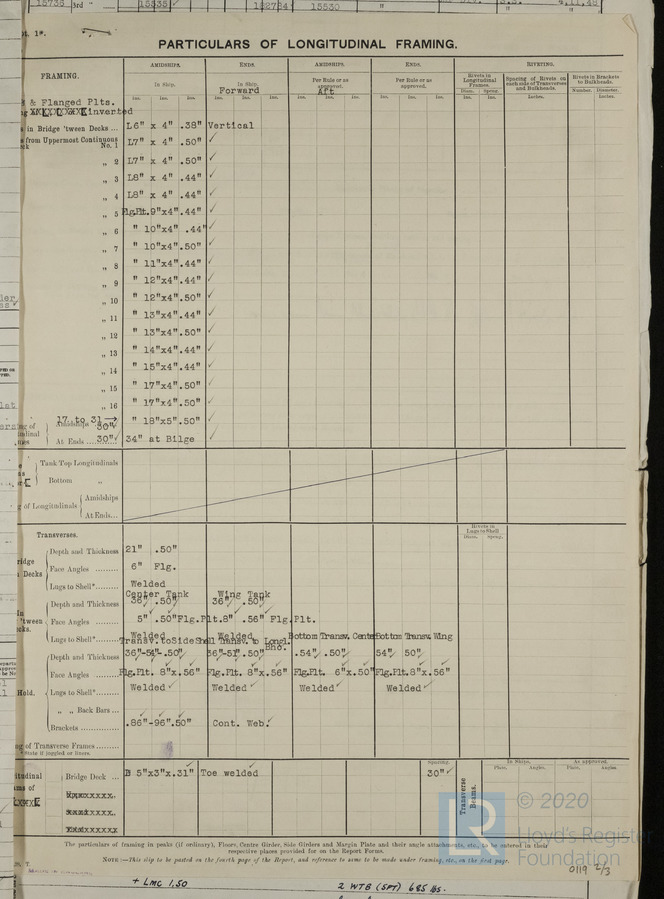 15736 3rd " 15535 " 152784 15530 " 4,11,48
PARTICULARS OF LONGITUDINAL FRAMING.
FRAMING. AMIDSHIPS. ENDS. AMIDSHIPS. ENDS. RIVETING.
In Ship. In Ship. Per Rule or as approved. Per Rule or as approved. Rivets in Longitudinal Frames. Spacing of Rivets on each side of Transverses and Bulkheads. Rivets in Brackets to Bulkheads.
Forward Aft
Ins. Ins. Ins. Ins. Ins. Ins. Ins. Ins. Ins. Ins. Ins. Ins. Diam. Spcng. Inches. Number. Diameter.
Ins. Ins. Inches.
& Flanged Plts.
inverted
in Bridge 'tween Decks ... L6" x 4" .38" Vertical
from Uppermost Continuous
No. 1 L7" x 4" .50" ✓
„ 2 L7" x 4" .50" ✓
„ 3 L8" x 4" .44" ✓
„ 4 L8" x 4" .44" ✓
„ 5 Flg.Plt.9"x4".44" ✓
„ 6 " 10"x4" .44" ✓
„ 7 " 10"x4".50" ✓
„ 8 " 11"x4".44" ✓
„ 9 " 12"x4".44" ✓
„ 10 " 12"x4".50" ✓
„ 11 " 13"x4".44" ✓
„ 12 " 13"x4".50" ✓
„ 13 " 14"x4".44" ✓
„ 14 " 15"x4".44" ✓
„ 15 " 17"x4".50" ✓
„ 16 " 17"x4".50" ✓
17 to 31 → " 18"x5".50" ✓
Amidships 30"
At Ends .......... 30"✓ 34" at Bilge ✓
Tank Top Longitudinals
Bottom „
g of Longitudinals Amidships
At Ends...
Transverses. Rivets in Lugs to Shell
Diam. Spcng.
Depth and Thickness 21" .50"
Face Angles ......... 6" Flg.
Lugs to Shell*......... Welded
Center Tank Wing Tank
Depth and Thickness 36" .50" 36" .50"
Face Angles ......... 5" .50"Flg.Plt.8" .56" Flg.Plt.
Lugs to Shell*......... Welded Welded
Transv. toSide Shell Transv. to Longl. Bhd. Bottom Transv. Center Bottom Transv. Wing
Depth and Thickness 36"-54" .50" 36"-51" .50" .54" .50" 54" 50"
Face Angles ......... Flg.Plt. 8"x.56" Flg.Plt. 8"x.56" Flg.Plt. 6"x.50" Flg.Plt.8"x.56"
Hold. Lugs to Shell*......... Welded ✓ Welded ✓ Welded ✓ Welded ✓
„ „ Back Bars ...
Brackets.............. .86"-96".50" Cont. Web.
g of Transverse Frames ........
State if joggled or liners.
Spacing. In Ship. As approved.
Plate. Angles. Plate. Angles.
Bridge Deck ... 5"x3"x.31" Toe welded 30"✓
Transverse Beams.
The particulars of framing in peaks (if ordinary), Floors, Centre Girder, Side Girders and Margin Plate and their angle attachments, etc., to be entered in their
respective places provided for on the Report Forms.
NOTE:—This slip to be pasted on the fourth page of the Report, and reference to same to be made under framing, etc., on the first page.
© 2020
Lloyd's Register
Foundation
0119 2/3
+ LMC 1,50
2 WTB (SPT) 685 lbs.